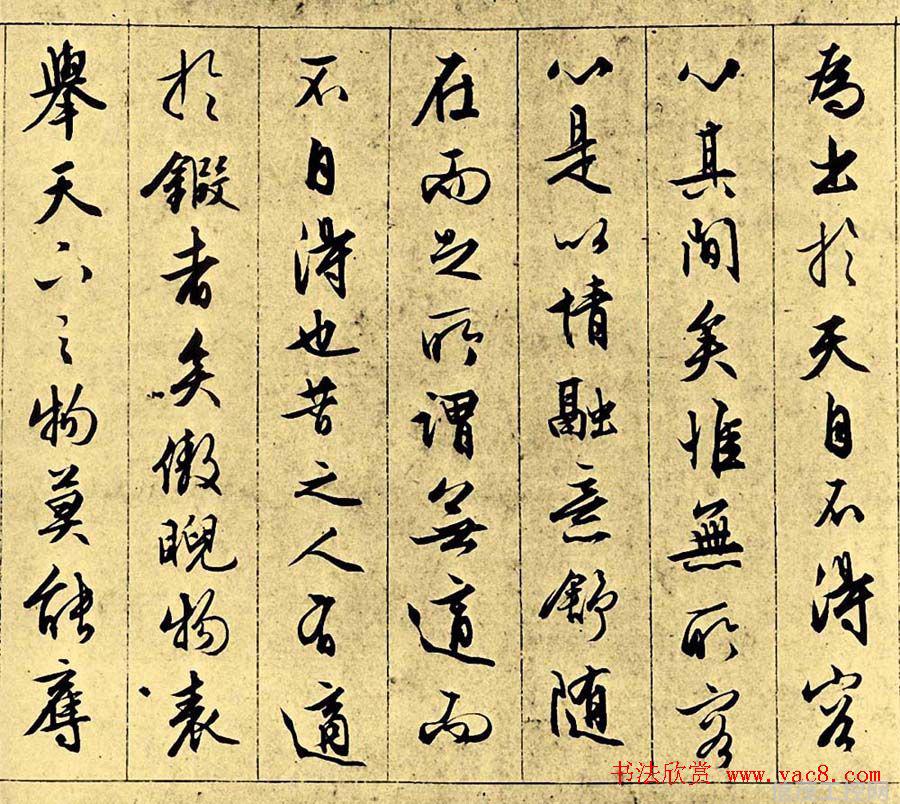 為出於天自不得容
心其間矣惟無所容
心是以情融意舒随
在而足所謂無適而
不自得也昔之人有適
於鍛者矣傲睨物表
舉天下之物莫能奪
书法欣赏 www.vac8.com